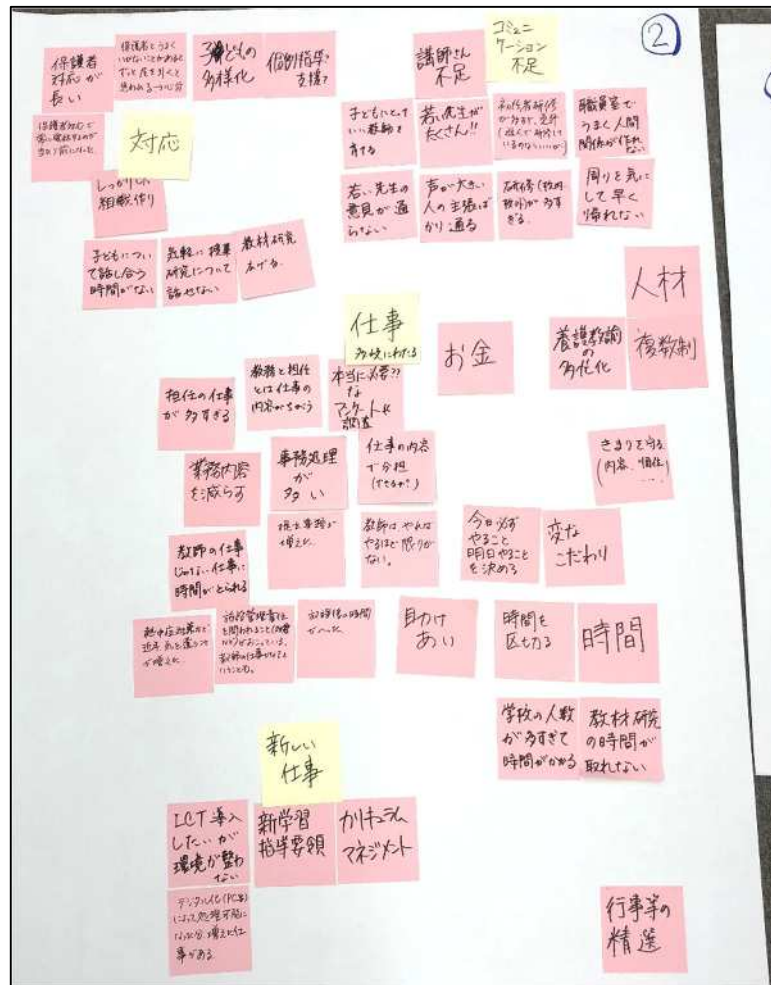 ②
保護者
対応が
長い
保護者とうまく
いかないことがあれば
ずっと尾を引くと
思われる
子どもの
多様化
個別指導?
支援?
講師さん
不足
コミュニ
ケーション
不足
保護者対応で
対応
しっかりした
組織作り
子どもにとって
いい教師を
育てる
若い先生が
たくさん!!
初任者研修
が多すぎ、
職員室で
うまく人間
関係が作れ
ない
若い先生の
意見が通
らない
声が大きい
人の主張ば
かり通る
研修(校内
校外)が多す
ぎる。
周りを気に
して早く
帰れない
子どもについ
て話し合う
時間がない
気軽に授業
研究について
話せない
教材研究
広げる
人材
仕事
多岐にわたる
お金
養護教諭
の
多忙化
複数制
担任の仕事
が多すぎる
教務と担任
とは仕事の
内容がちがう
本当に必要??
な
アンケートや
調査
業務内容
を減らす
事務処理
が
多い
仕事の内容
で分担
(できるか?)
きまりを守る
(内容、
教師の仕事
じゃない仕事に
時間がとられる
提出書類が
増えた
教師は、やれば
やるほど限りが
ない。
今日必ず
やること
明日やること
を決める
変な
こだわり
熱中症対策など
近年 気を遣うこと
が増えた
施設管理責任
を問われること
教師の仕事
ということも。
放課後の時間
がへった
助け
あい
時間を
区切る
時間
学校の人数
が多すぎて
時間がかかる
教材研究
の時間が
取れない
新しい
仕事
ICT導入
したいが
環境が整わ
ない
新学習
指導要領
カリキュラム
マネジメント
デジタル化(PC等)
によって処理可能に
なった分、増えた仕
事がある
行事等の
精選